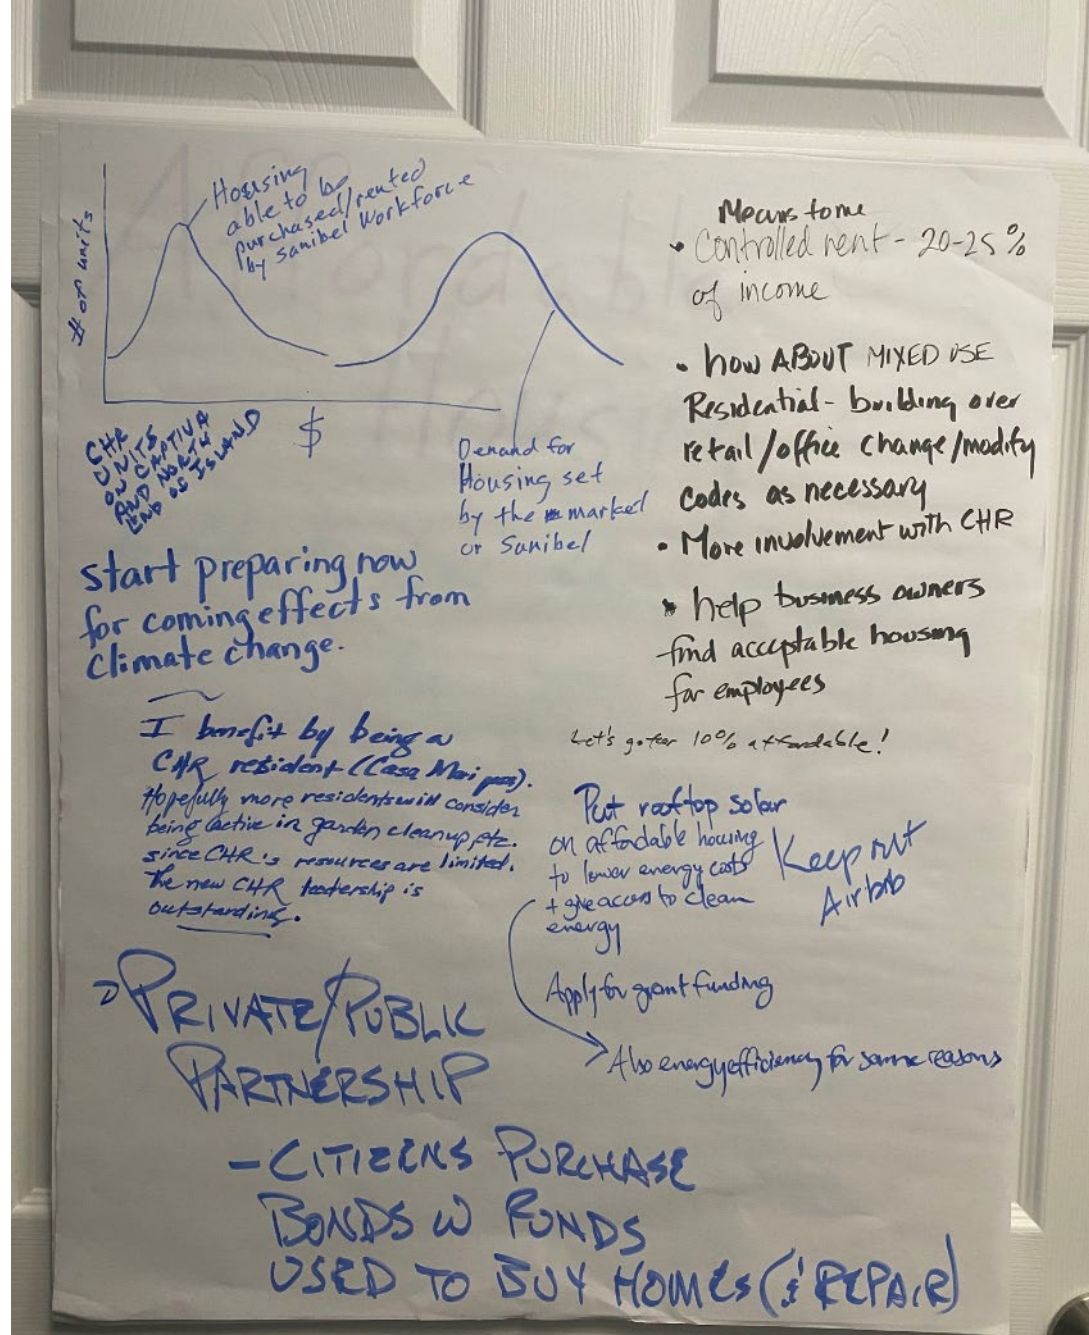 # of units
Housing
able to be
purchased/rented
by Sanibel Workforce
$
CHR
UNITS
ON CAPTIVA
AND NORTH
END OF ISLAND
Demand for
Housing set
by the market
or Sanibel
start preparing now
for coming effects from
climate change.
I benefit by being a
CHR resident (Casa Mariposa).
Hopefully more residents will consider
being active in garden cleanup, etc.
since CHR's resources are limited.
The new CHR leadership is
outstanding.
PRIVATE/PUBLIC
PARTNERSHIP
- CITIZENS PURCHASE
BONDS W FUNDS
USED TO BUY HOMES (& REPAIR)
Means to me
• Controlled rent - 20-25%
of income
• how ABOUT MIXED USE
Residential - building over
retail/office change/modify
codes as necessary
• More involvement with CHR
• help business owners
find acceptable housing
for employees
Let's go for 10% affordable!
Put rooftop solar
on affordable housing
to lower energy costs
+ give access to clean
energy
Keep out
Airbnb
Apply for grant funding
Also energy efficiency for same reasons
Affordable
Hous